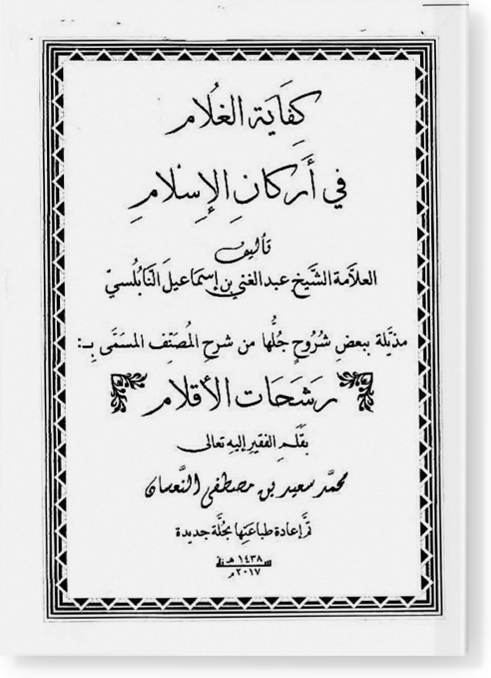 كِفَاية الغُلام
في أَركانِ الإِسْلامِ
تأليف
العلاَّمة الشَّيخ عبدالغني بن إسماعيل النَّابُلُسيّ
مذيَّلة ببعضِ شُروحٍ جُلُّها من شرحِ المُصَنِّف المسَمَّى بِـ:
رشَحَات الأقلام
بقَلَمِ الفقيرِ إليه تعالى
محمَّد سعيد بن مصطفى النَّعسان
تمَّ إعادة طباعَتِها بحُلَّة جديدة
سنة ١٤٣٨ هـ
٢٠١٧ م